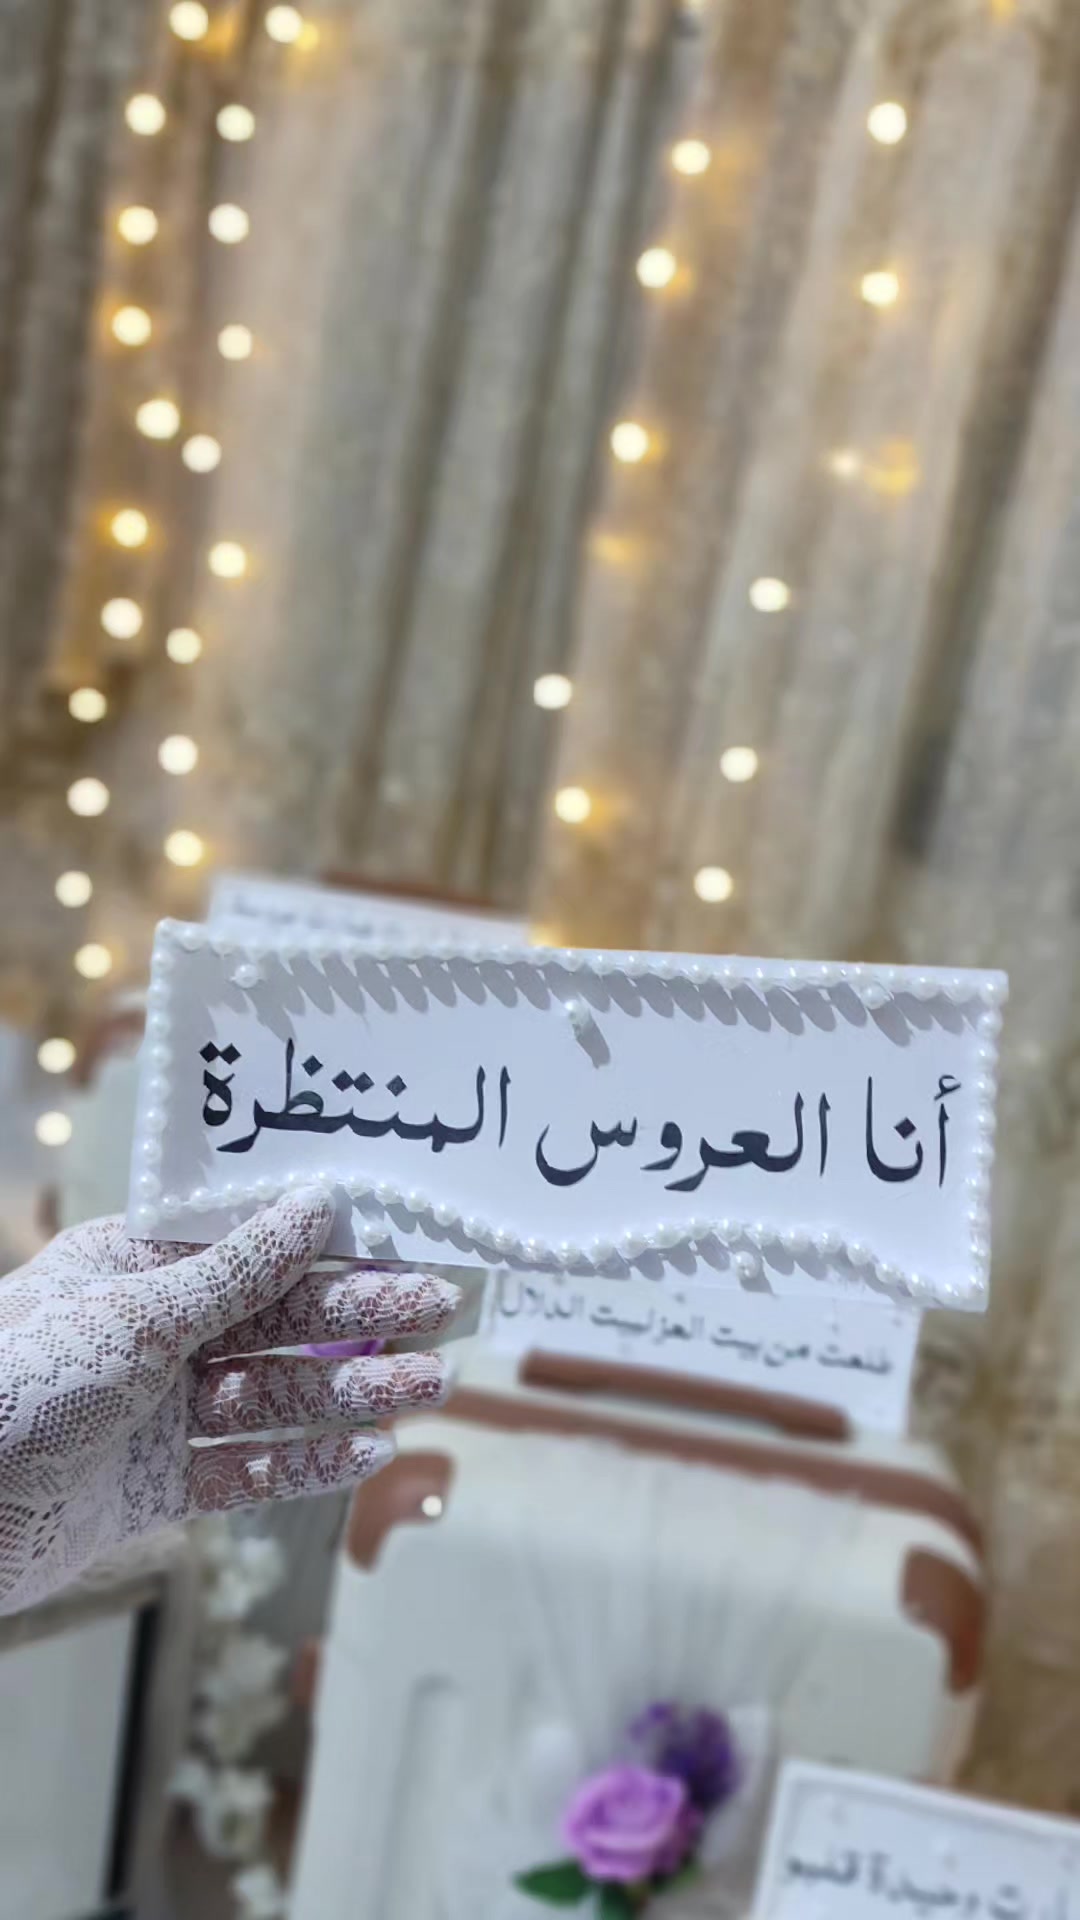 أنا العروس المنتظرة
طلعت من بيت العز لبيت الدلال
وحيدة قلبو